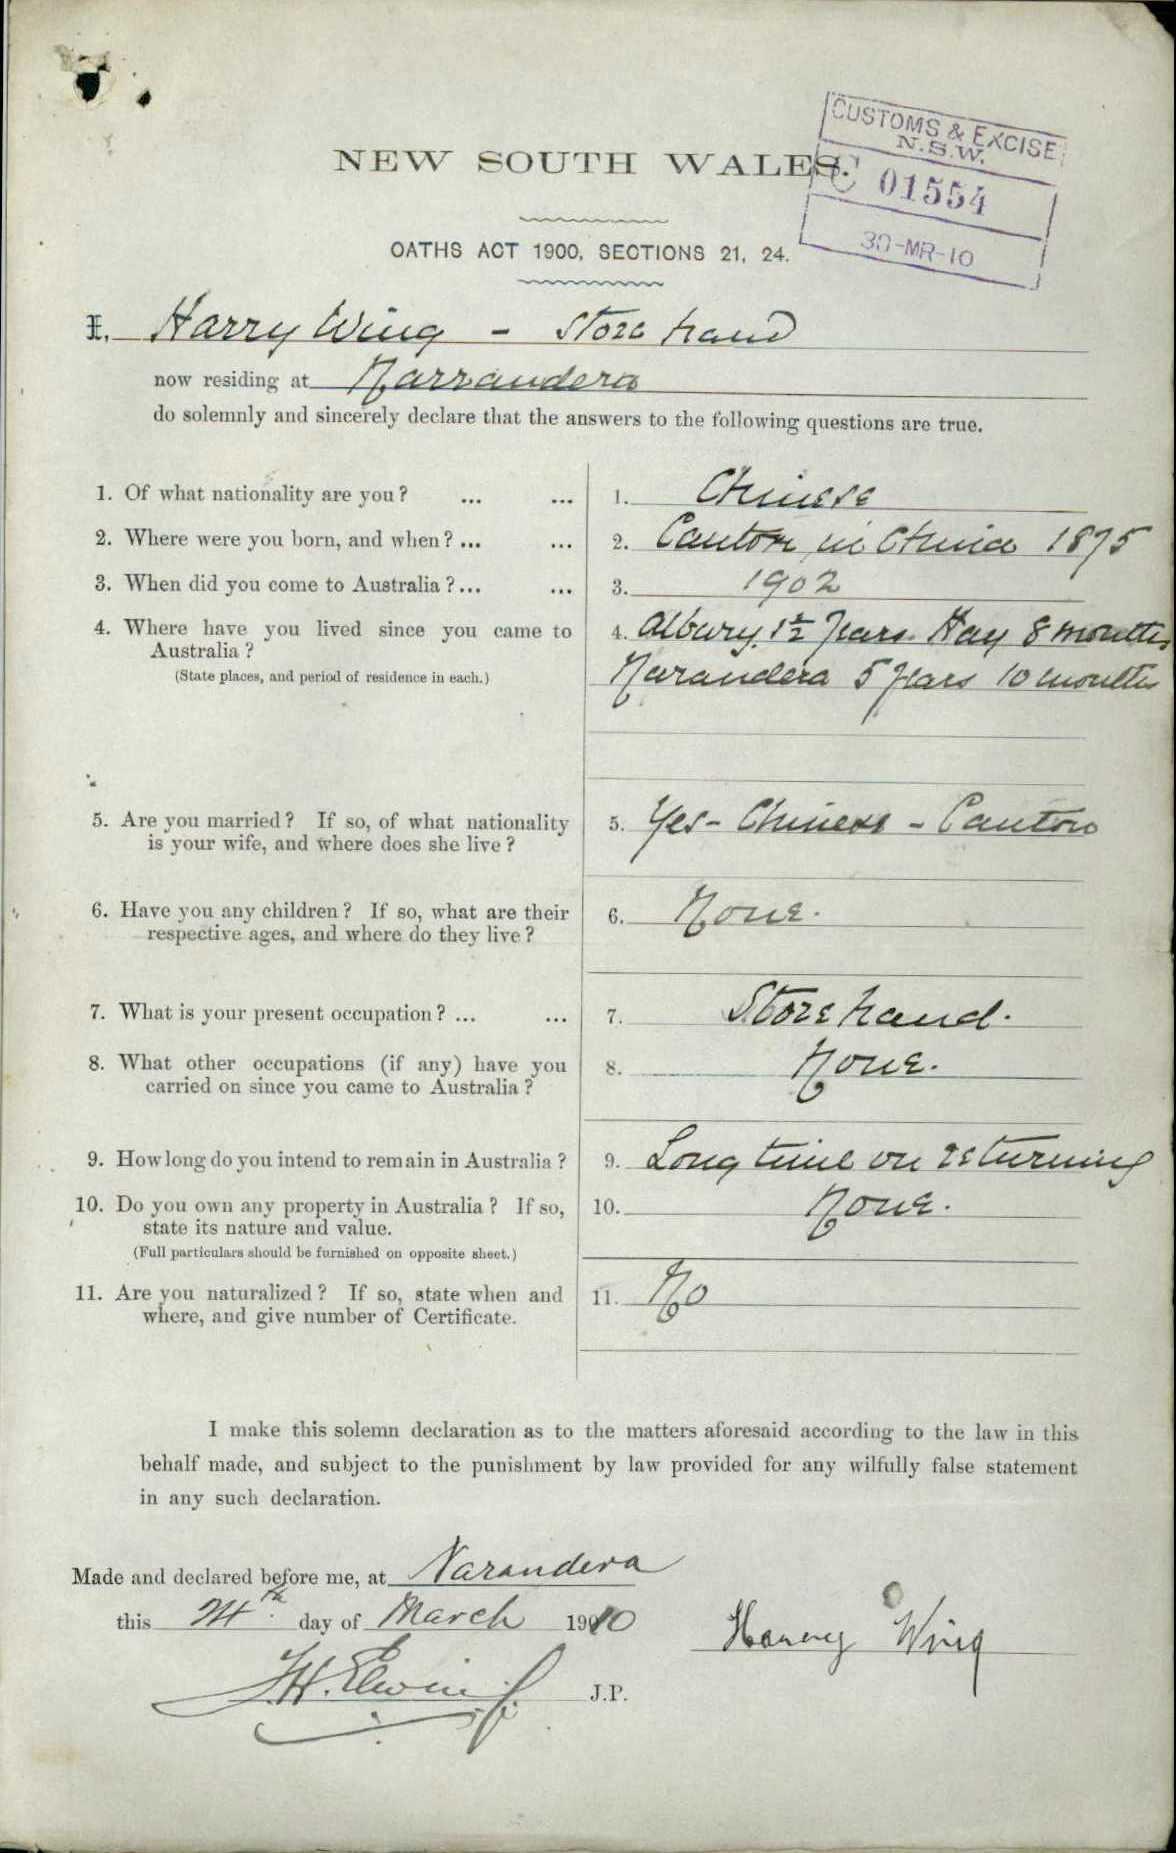 CUSTOMS & EXCISE
N.S.W.
C 01554
30-MR-10
NEW SOUTH WALES.
OATHS ACT 1900, SECTIONS 21, 24.
I, Harry Wing - Store hand
now residing at Narrandera
do solemnly and sincerely declare that the answers to the following questions are true.
1. Of what nationality are you? ... ... 1. Chinese
2. Where were you born, and when? ... ... 2. Canton in China 1875
3. When did you come to Australia? ... ... 3. 1902
4. Where have you lived since you came to 4. Albury 1½ years. Hay 8 months
Australia?
(State places, and period of residence in each.) Narandera 5 years 10 months
5. Are you married? If so, of what nationality 5. Yes - Chinese - Canton
is your wife, and where does she live?
6. Have you any children? If so, what are their 6. None.
respective ages, and where do they live?
7. What is your present occupation? ... ... 7. Store hand.
8. What other occupations (if any) have you 8. None.
carried on since you came to Australia?
9. How long do you intend to remain in Australia? 9. Long time on returning
10. Do you own any property in Australia? If so, 10. None.
state its nature and value.
(Full particulars should be furnished on opposite sheet.)
11. Are you naturalized? If so, state when and 11. No
where, and give number of Certificate.
I make this solemn declaration as to the matters aforesaid according to the law in this
behalf made, and subject to the punishment by law provided for any wilfully false statement
in any such declaration.
Made and declared before me, at Narandera
this 24th. day of March 1910
Harry Wing
J.H. Elwin J.P.